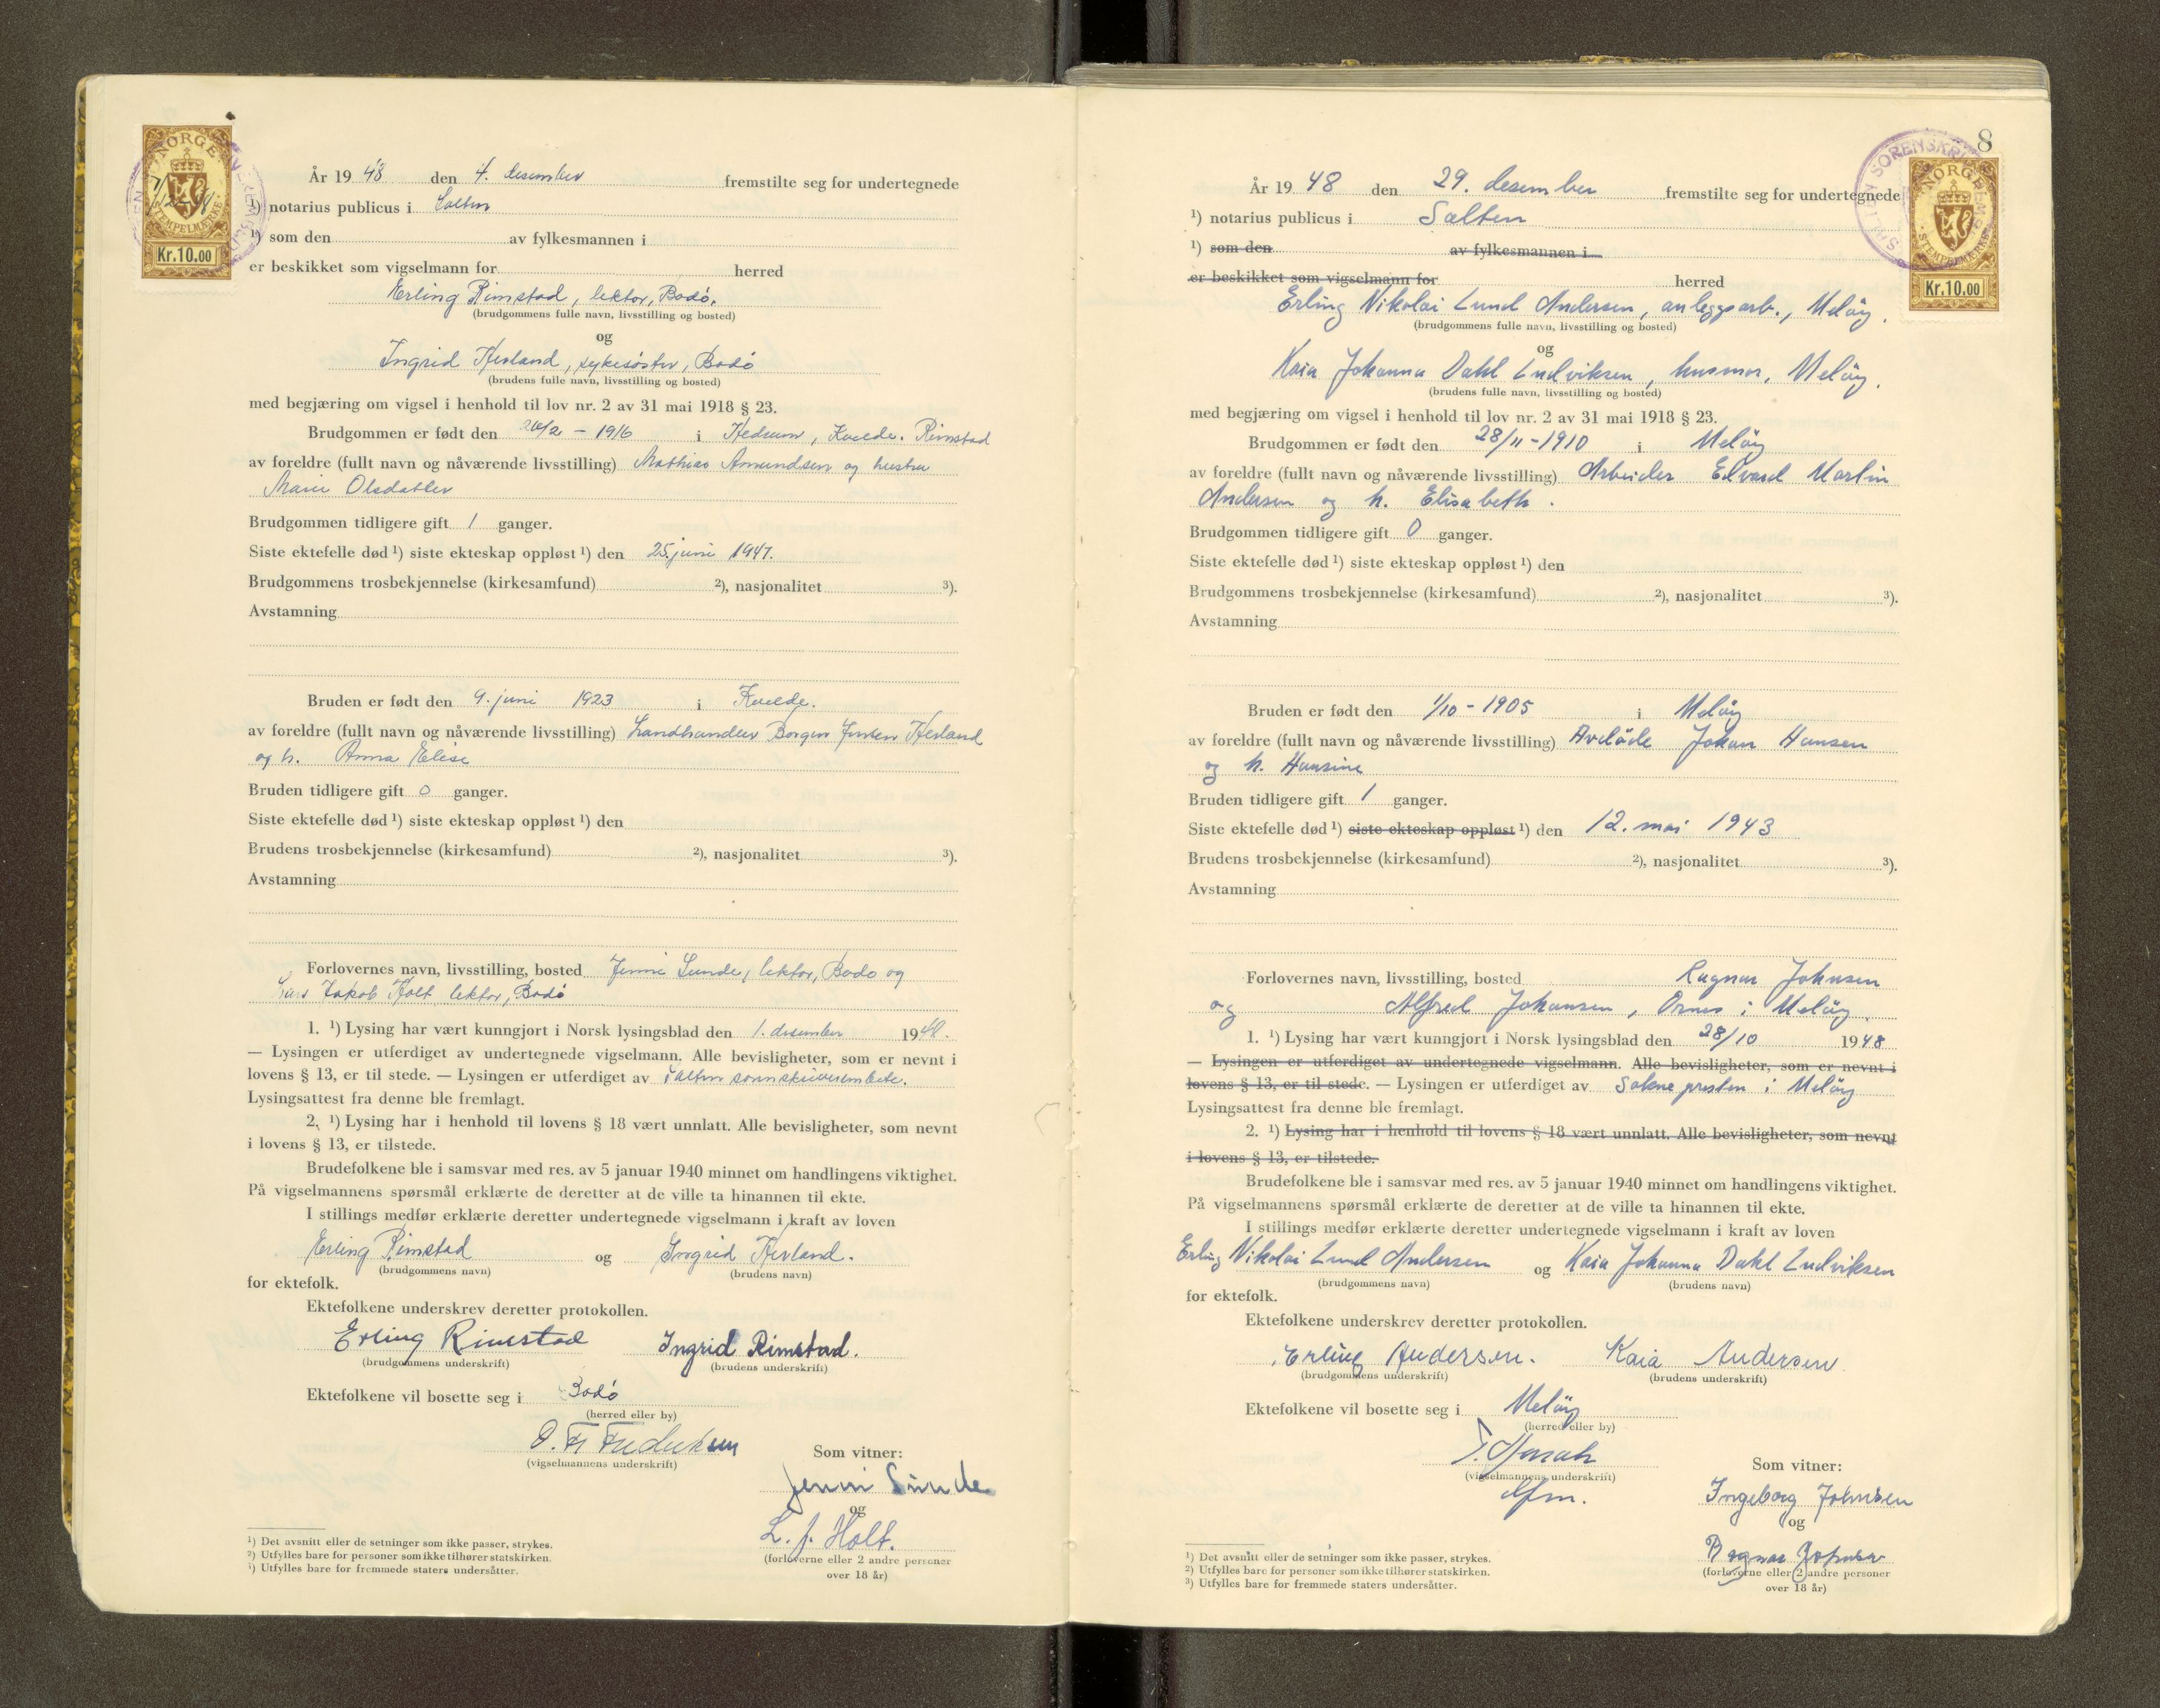 NORGE
STEMPELMERKE
Kr.10.00
År 1948 den 4. desember fremstilte seg for undertegnede
¹) notarius publicus i Salten
¹) som den av fylkesmannen i
er beskikket som vigselmann for herred
Erling Rimstad, lektor, Bodö.
(brudgommens fulle navn, livsstilling og bosted)
og
Ingrid Herland, sykesöster, Bodö
(brudens fulle navn, livsstilling og bosted)
med begjæring om vigsel i henhold til lov nr. 2 av 31 mai 1918 § 23.
Brudgommen er født den 26/2 - 1916 i Hedrum, Kvelde. Rimstad
av foreldre (fullt navn og nåværende livsstilling) Mathias Amundsen og hustru
Marie Olsdatter
Brudgommen tidligere gift 1 ganger.
Siste ektefelle død ¹) siste ekteskap oppløst ¹) den 25. juni 1947.
Brudgommens trosbekjennelse (kirkesamfund) ²), nasjonalitet ³).
Avstamning
Bruden er født den 9. juni 1923 i Kvelde.
av foreldre (fullt navn og nåværende livsstilling) Landhandler Borgar Jensen Herland
og h. Anna Elise
Bruden tidligere gift 0 ganger.
Siste ektefelle død ¹) siste ekteskap oppløst ¹) den
Brudens trosbekjennelse (kirkesamfund) ²), nasjonalitet ³).
Avstamning
Forlovernes navn, livsstilling, bosted Jenni Sunde, lektor, Bodö og
Lars Jakob Holt lektor, Bodö
1. ¹) Lysing har vært kunngjort i Norsk lysingsblad den 1. desember 1948.
— Lysingen er utferdiget av undertegnede vigselmann. Alle bevisligheter, som er nevnt i
lovens § 13, er til stede. — Lysingen er utferdiget av Salten sorenskriverembete.
Lysingsattest fra denne ble fremlagt.
2. ¹) Lysing har i henhold til lovens § 18 vært unnlatt. Alle bevisligheter, som nevnt
i lovens § 13, er tilstede.
Brudefolkene ble i samsvar med res. av 5 januar 1940 minnet om handlingens viktighet.
På vigselmannens spørsmål erklærte de deretter at de ville ta hinannen til ekte.
I stillings medfør erklærte deretter undertegnede vigselmann i kraft av loven
Erling Rimstad og Ingrid Herland.
(brudgommens navn) (brudens navn)
for ektefolk.
Ektefolkene underskrev deretter protokollen.
Erling Rimstad Ingrid Rimstad.
(brudgommens underskrift) (brudens underskrift)
Ektefolkene vil bosette seg i Bodö
(herred eller by)
O. Fr Fredriksen
(vigselmannens underskrift)
Som vitner:
Jenni Sunde
og
L. J. Holt.
(forloverne eller 2 andre personer
over 18 år)
¹) Det avsnitt eller de setninger som ikke passer, strykes.
²) Utfylles bare for personer som ikke tilhører statskirken.
³) Utfylles bare for fremmede staters undersåtter.
8
SALTEN SORENSKRI
NORGE
STEMPELMERKE
Kr.10.00
År 1948 den 29. desember fremstilte seg for undertegnede
¹) notarius publicus i Salten
¹) som den av fylkesmannen i
er beskikket som vigselmann for herred
Erling Nikolai Lund Andersen, anleggsarb., Melöy.
(brudgommens fulle navn, livsstilling og bosted)
og
Kaia Johanna Dahl Ludviksen, husmor, Melöy.
(brudens fulle navn, livsstilling og bosted)
med begjæring om vigsel i henhold til lov nr. 2 av 31 mai 1918 § 23.
Brudgommen er født den 28/11-1910 i Melöy
av foreldre (fullt navn og nåværende livsstilling) Arbeider Edvard Martin
Andersen og h. Elisabeth.
Brudgommen tidligere gift 0 ganger.
Siste ektefelle død ¹) siste ekteskap oppløst ¹) den
Brudgommens trosbekjennelse (kirkesamfund) ²), nasjonalitet ³).
Avstamning
Bruden er født den 1/10 - 1905 i Melöy
av foreldre (fullt navn og nåværende livsstilling) Avdöde Johan Hansen
og h. Hansine
Bruden tidligere gift 1 ganger.
Siste ektefelle død ¹) siste ekteskap oppløst ¹) den 12. mai 1943
Brudens trosbekjennelse (kirkesamfund) ²), nasjonalitet ³).
Avstamning
Forlovernes navn, livsstilling, bosted Ragnar Johnsen
og Alfred Johansen, Ornes i Melöy.
1. ¹) Lysing har vært kunngjort i Norsk lysingsblad den 28/10 1948
— Lysingen er utferdiget av undertegnede vigselmann. Alle bevisligheter, som er nevnt i
lovens § 13, er til stede. — Lysingen er utferdiget av Soknepresten i Melöy
Lysingsattest fra denne ble fremlagt.
2. ¹) Lysing har i henhold til lovens § 18 vært unnlatt. Alle bevisligheter, som nevnt
i lovens § 13, er tilstede.
Brudefolkene ble i samsvar med res. av 5 januar 1940 minnet om handlingens viktighet.
På vigselmannens spørsmål erklærte de deretter at de ville ta hinannen til ekte.
I stillings medfør erklærte deretter undertegnede vigselmann i kraft av loven
Erling Nikolai Lund Andersen og Kaia Johanna Dahl Ludviksen
(brudgommens navn) (brudens navn)
for ektefolk.
Ektefolkene underskrev deretter protokollen.
Erling Andersen. Kaia Andersen
(brudgommens underskrift) (brudens underskrift)
Ektefolkene vil bosette seg i Melöy
(herred eller by)
(vigselmannens underskrift)
Som vitner:
Ingeborg Johnsen
og
Ragnar Johnsen
(forloverne eller 2 andre personer
over 18 år)
¹) Det avsnitt eller de setninger som ikke passer, strykes.
²) Utfylles bare for personer som ikke tilhører statskirken.
³) Utfylles bare for fremmede staters undersåtter.